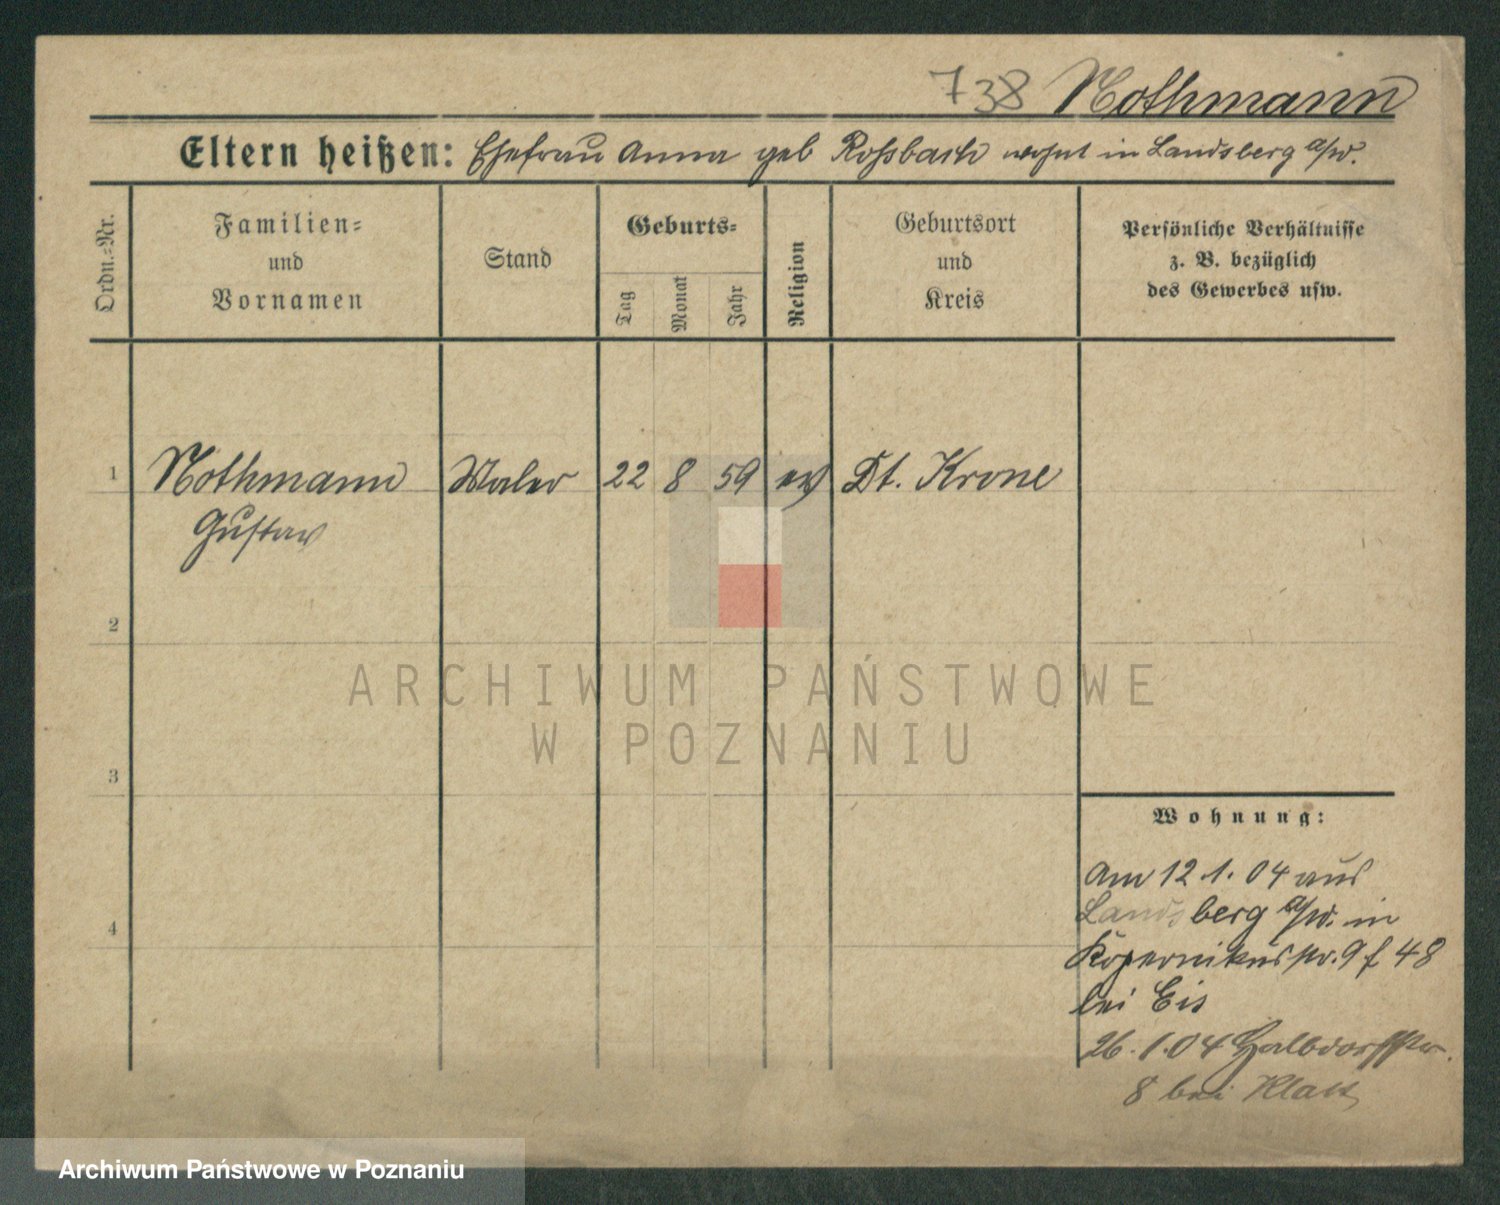 738 Nothmann
Eltern heißen: Ehefrau Anna geb Roßbach wohnt in Landsberg a/W.
Ordn.=Nr.
Familien=
und
Vornamen
Stand
Geburts=
Tag
Monat
Jahr
Religion
Geburtsort
und
Kreis
Persönliche Verhältnisse
z. B. bezüglich
des Gewerbes usw.
1 Nothmann Maler 22 8 59 ev Dt. Krone
Gustav
2
3
4
Wohnung:
Am 12.1.04 aus
Landsberg a/W. in
Kopernikusstr. 9 f 48
bei Eis
26.1.04 Halbdorffstr.
8 bei Klatt
ARCHIWUM PAŃSTWOWE
W POZNANIU
Archiwum Państwowe w Poznaniu